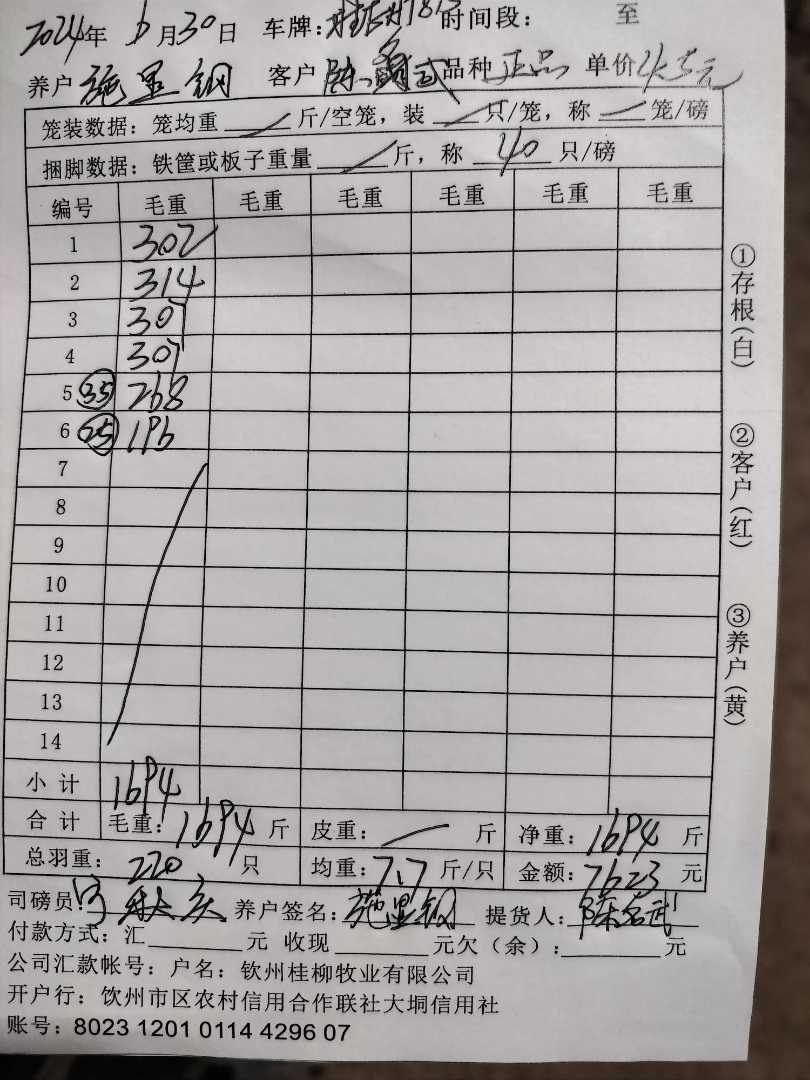 2024年 6月30日 车牌： 时间段： 至
养户 施显钢 客户 陈名武 品种 正品 单价 4.5元
笼装数据：笼均重 / 斤/空笼，装 / 只/笼，称 / 笼/磅
捆脚数据：铁筐或板子重量 / 斤，称 40 只/磅
编号 毛重 毛重 毛重 毛重 毛重 毛重
1 302
2 314
3 307
4 307
5 35 268
6 25 196
7
8
9
10
11
12
13
14
小计 1694
合计 毛重：1694 斤 皮重： / 斤 净重：1694 斤
总羽重：220 只 均重：7.7 斤/只 金额：7623 元
司磅员： 养户签名：施显钢 提货人：陈名武
付款方式：汇 元 收现 元欠（余）： 元
公司汇款帐号：户名：钦州桂柳牧业有限公司
开户行：饮州市区农村信用合作联社大垌信用社
账号：8023 1201 0114 4296 07
①存根(白)
②客户(红)
③养户(黄)